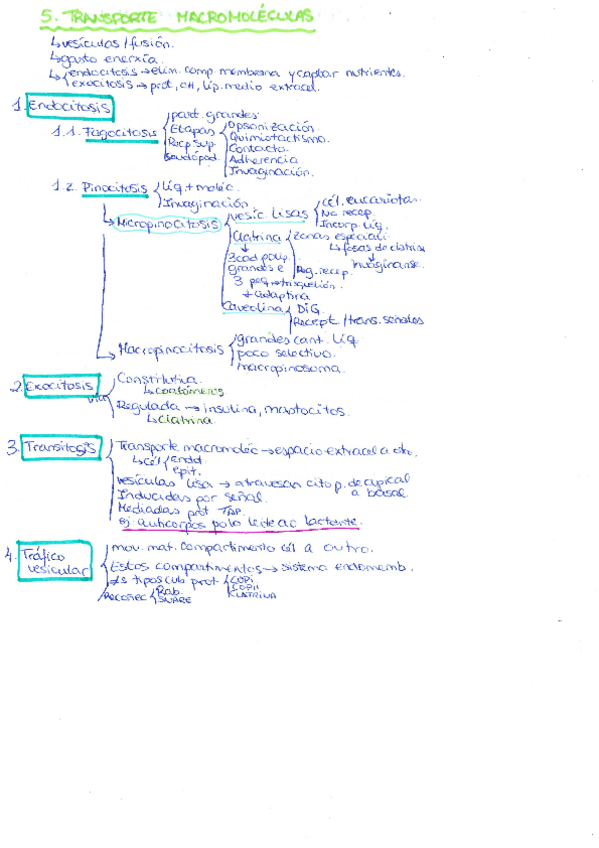 5. TRANSPORTE MACROMOLÉCULAS
↳vesículas/fusión.
↳gasto enerxía.
↳endocitosis→elim. comp membrana y captar nutrientes.
exocitosis→prot, CH, líp. medio extracel.
1. Endocitosis
1.1. Fagocitosis
part. grandes.
Etapas
Opsonización.
Quimiotactismo.
Contacto.
Adherencia
Invaginación.
Recep. Sup.
Pseudópod.
1.2. Pinocitosis
Líq. + moléc.
Invaginación
↳Micropinocitosis
vesíc. lisas
cél. eucariotas.
No recep.
Incorp. líq.
Clatrina
zonas especiali.
↳fosas de clatrina
invaginarse.
3 cad polip. grandes e
3 peq→trisquelión.
+ adaptina
Reg. recep.
Caveolina
DIG.
Recept/trans. señales
↳Macropinocitosis
grandes cant. líq.
poco selectivo.
macropinosoma.
2. Exocitosis
vía
Constitutiva.
↳coatómeros
Regulada → insulina, mastocitos.
↳clatrina.
3. Transitosis
Transporte macromoléc→espacio extracel a otro.
↳cél
endot.
epit.
vesículas lisa → atraviesan citop. de apical
a basal
Inducidas por señal.
Mediadas prot TAP.
ej anticorpos polo leite ao lactante.
4. Tráfico vesicular
mov. mat. compartimento cél a outro.
Estos compartimentos→ sistema endomemb.
≠s tipos cub prot
COPI
COPII
CLATRINA
Recoñec
Rab.
SNARE